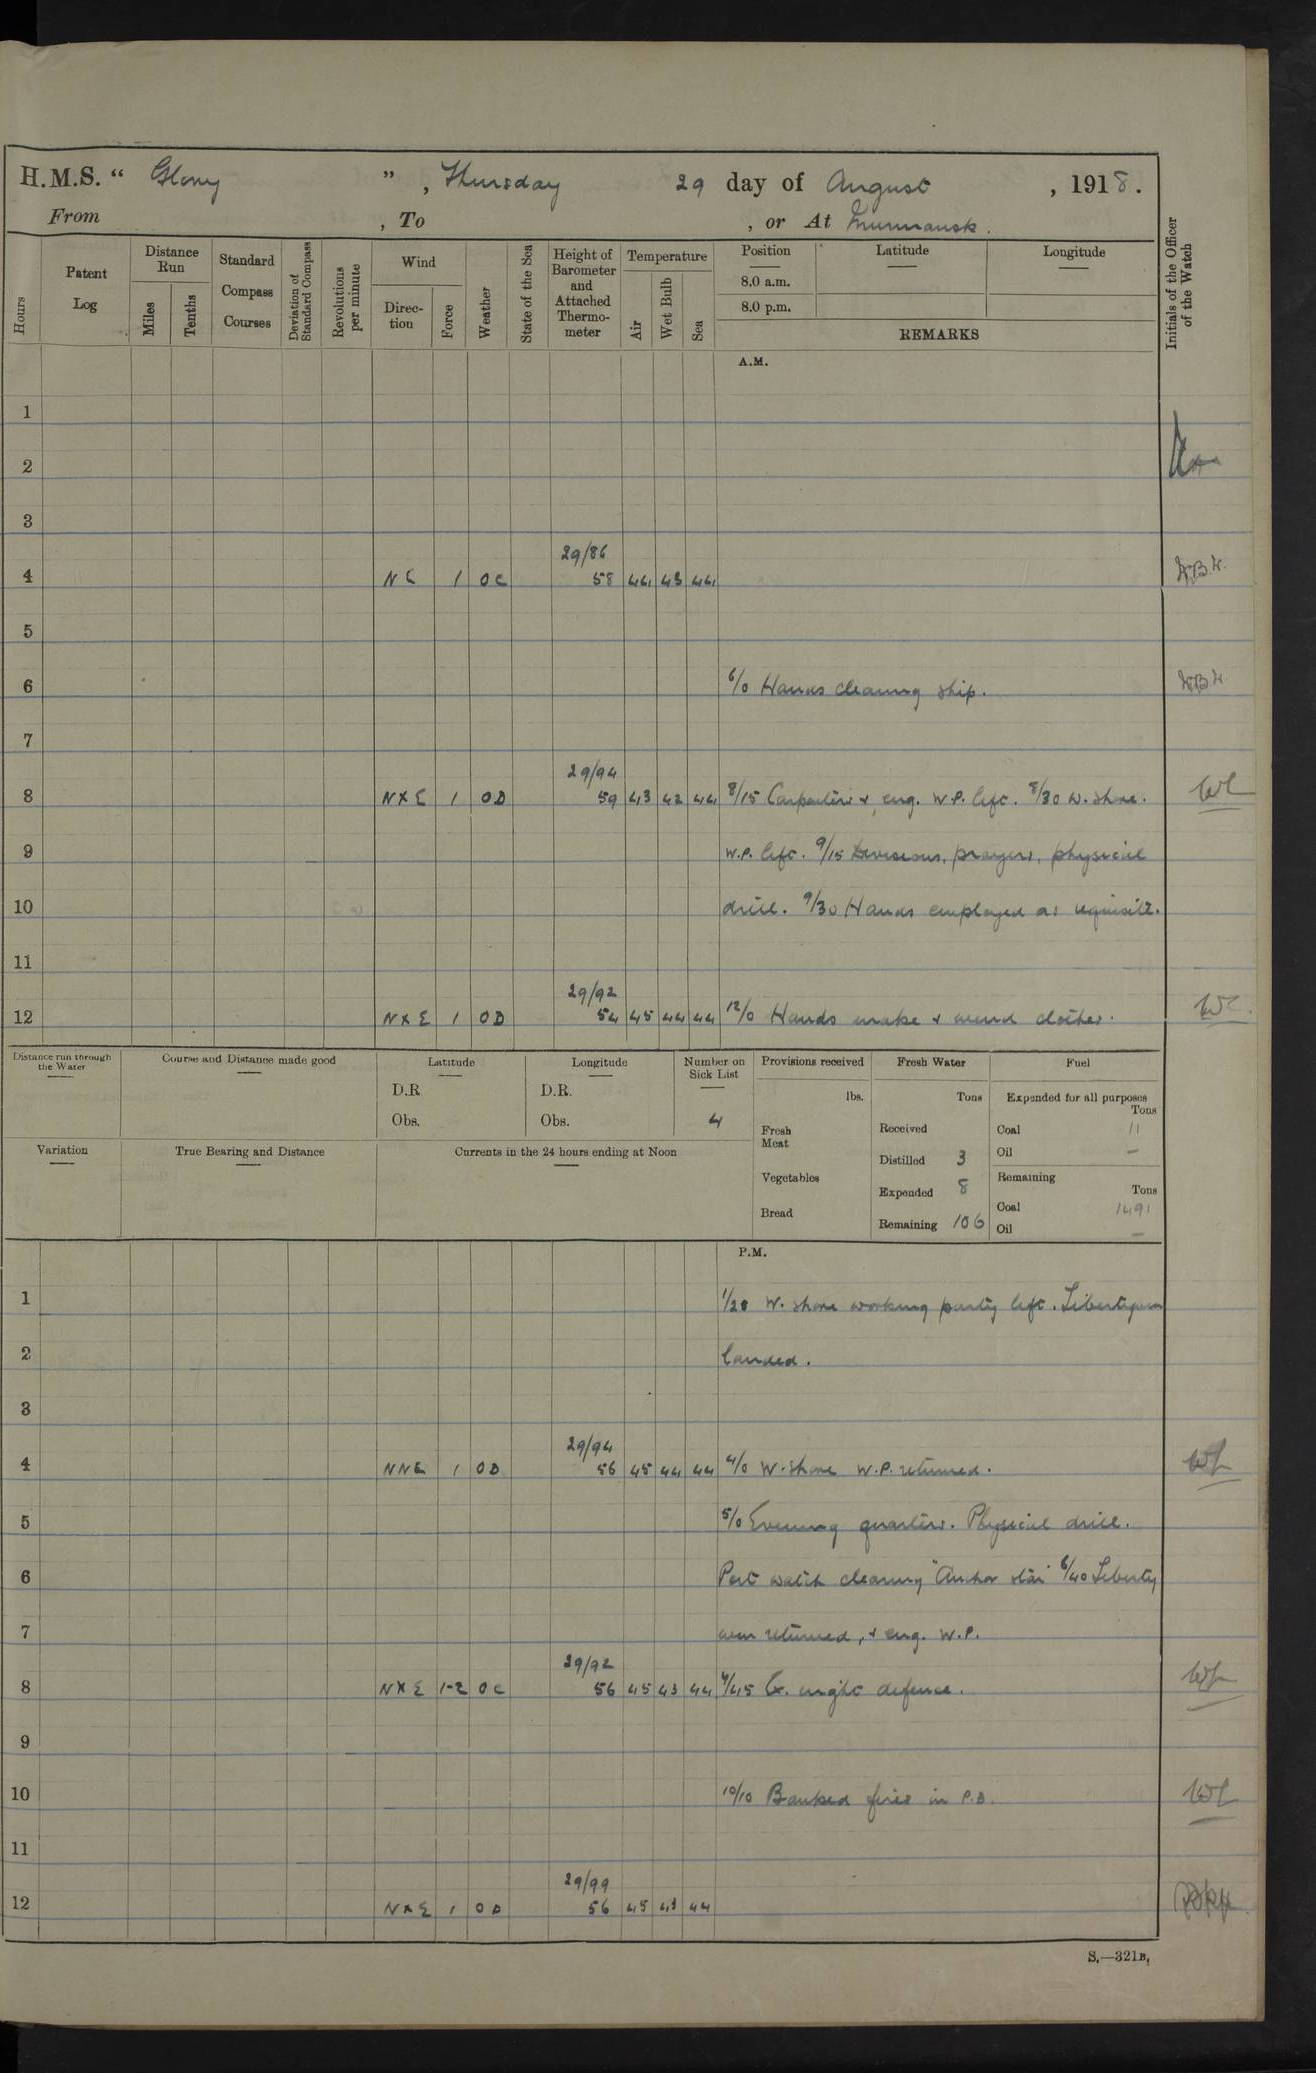 H.M.S. “ Glory ” , Thursday 29 day of August , 1918.
From , To , or At Murmansk.
Hours
Patent Log
Distance Run
Miles
Tenths
Standard Compass Courses
Deviation of Standard Compass
Revolutions per minute
Wind
Direction
Force
Weather
State of the Sea
Height of Barometer and Attached Thermometer
Temperature
Air
Wet Bulb
Sea
Position Latitude Longitude
8.0 a.m.
8.0 p.m.
REMARKS
Initials of the Officer of the Watch
A.M.
1
2
3
29/86
4 NE 1 OC 58 44 43 44
5
6 6/0 Hands cleaning ship.
7
29/94
8 NXE 1 OD 59 43 42 44 8/15 Carpenters & eng. W.P. left. 8/30 W. Shore.
9 W.P. left. 9/15 Divisions, prayers, physical
10 drill. 9/30 Hands employed as requisite.
11
29/92
12 NXE 1 OD 54 45 44 44 12/0 Hands make & mend clothes.
Distance run through the Water
Course and Distance made good
Latitude
D.R.
Obs.
Longitude
D.R.
Obs.
Number on Sick List
4
Variation
True Bearing and Distance
Currents in the 24 hours ending at Noon
Provisions received
lbs.
Fresh Meat
Vegetables
Bread
Fresh Water
Tons
Received
Distilled 3
Expended 8
Remaining 106
Fuel
Expended for all purposes
Tons
Coal 11
Oil –
Remaining
Tons
Coal 1491
Oil –
P.M.
1 1/20 W. Shore working party left. Libertymen
2 landed.
3
29/94
4 NNE 1 OD 56 45 44 44 4/0 W. Shore W.P. returned.
5 5/0 Evening quarters. Physical drill.
6 Port watch clearing "Anchor star" 6/40 Liberty
7 men returned, & eng. W.P.
29/92
8 NXE 1-2 OC 56 45 43 44 /45 Ex. night defence.
9
10 10/10 Banked fires in P.B.
11
29/99
12 NXE 1 OD 56 45 43 44
S.—321B.